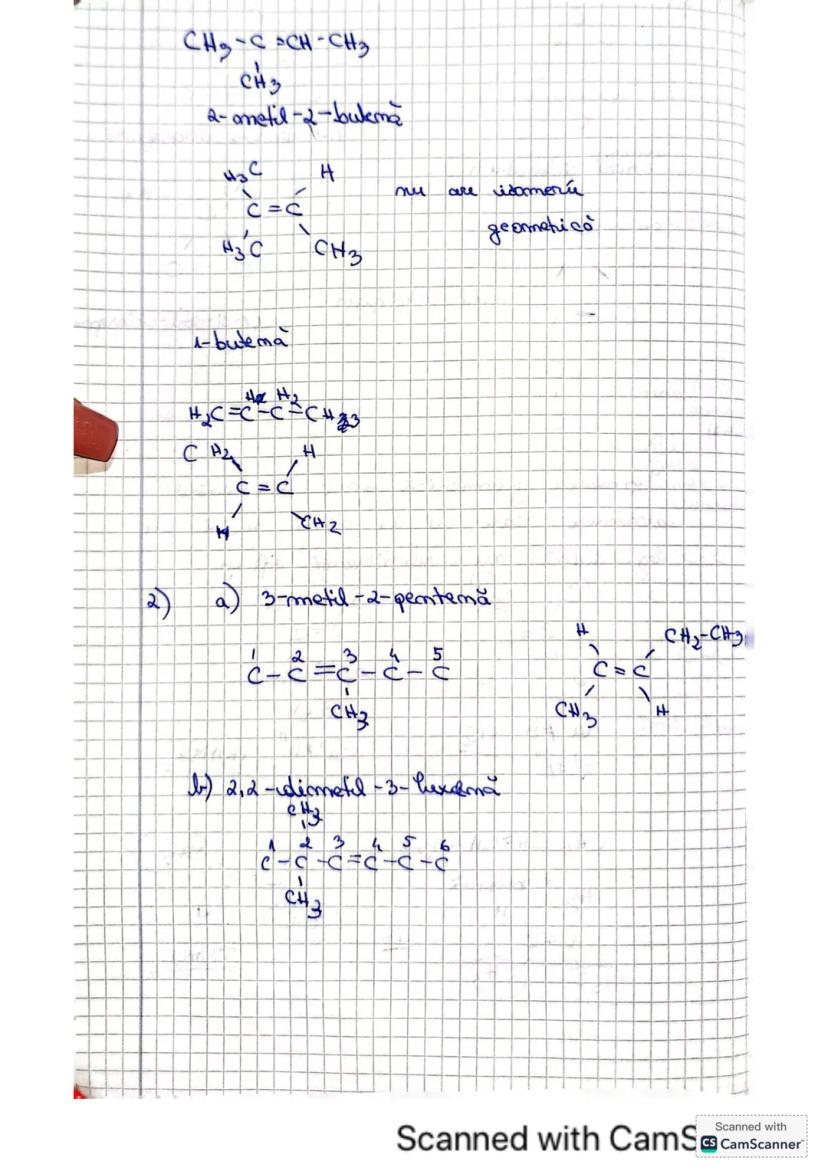 CH3-C=CH-CH3
CH3
2-metil-2-butenă
H3C H
C=C
H3C CH3
nu are izomerie
geometrică
1-butenă
H H2
H2C=C-C-CH3
CH2 H
C=C
H CH2
2) a) 3-metil-2-pentenă
1 2 3 4 5
C-C=C-C-C
CH3
H CH2-CH3
C=C
CH3 H
b) 2,2-dimetil-3-hexenă
CH3
1 2 3 4 5 6
C-C-C=C-C-C
CH3
Scanned with CamS
Scanned with
CS CamScanner